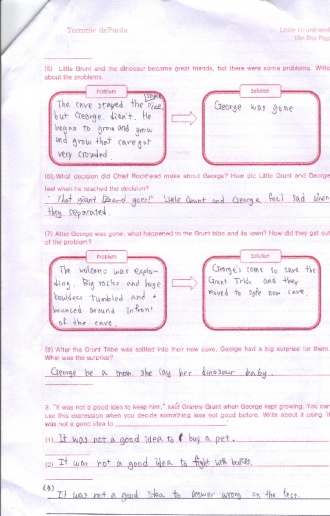 Tommie dePaola
Little Grunt and
the Big Egg
(5) Little Grunt and the dinosaur became great friends, but there were some problems. Write
about the problems.
Problem
The cave stayed the same size,
but George didn't. He
began to grow and grow
and grow that cave got
very crowded
Solution
George was gone
(6) What decision did Chief Rockhead make about George? How did Little Grunt and George
feel when he reached the decision?
"That giant lizard goes!" Little Grunt and George feel sad when
they separated.
(7) After George was gone, what happened to the Grunt tribe and its town? How did they get out
of the problem?
Problem
The volcano was explo-
ding. Big rocks and huge
boulders tumbled and
bounced around infront
of the cave.
Solution
George's come to save the
Grunt Tribe and they
moved to safe new cave.
(8) After the Grunt Tribe was settled into their new cove, George had a big surprise for them.
What was the surprise?
George be a mom. she lay her dinosaur baby.
3. "It was not a good idea to keep him," said Granny Grunt when George kept growing. You can
use this expression when you decide something was not good before. Write about it using "It
was not a good idea to
(1) It was not a good idea to buy a pet.
(2) It was not a good idea to fight with
(3) It was not a good idea to answer wrong on the test.